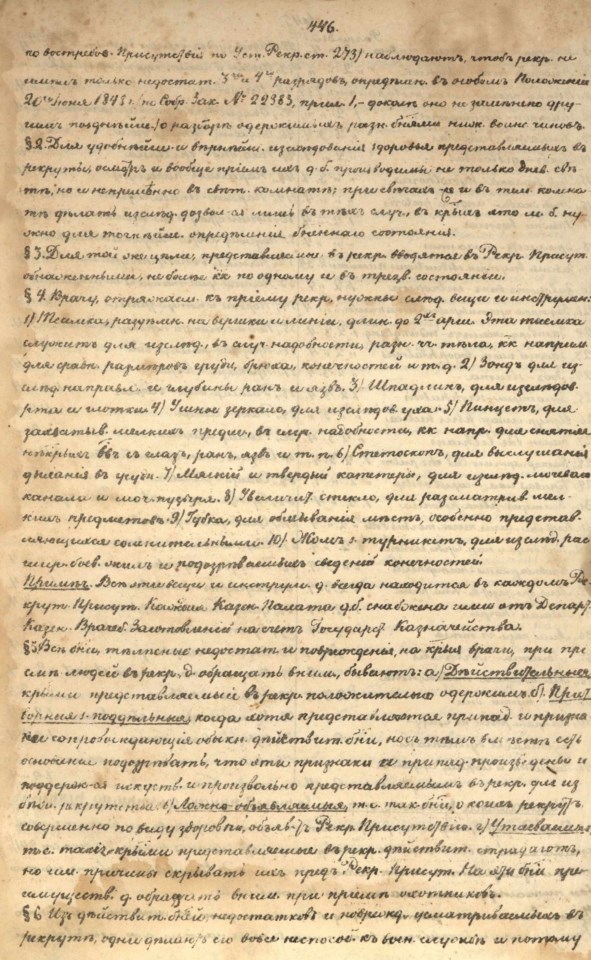 446.
по востребов. Присутствій по Уст. Рекр. ст. 273) наблюдаютъ, чтобъ рекр. не
имѣлъ только недостат. 3го и 4го разрядовъ, опредѣлен. въ особомъ Положеніи
20го Іюня 1848 г. (по Собр. Зак. № 22383, прим. 1,- доколѣ оно не замѣнено дру-
гимъ позднѣйш.) о разборѣ одержимыхъ разн. бнями нижн. воинс. чиновъ.
§ 2. Для удобнѣйш. и вѣрнѣйш. изслѣдованія здоровья представляемыхъ въ
рекруты, осмотръ и вообще пріемъ ихъ д. б. производимы не только днев. свѣ
тѣ, но и непремѣнно въ свѣт. комнатѣ; при свѣчахъ же и въ темн. комна-
тѣ дѣлать изслѣд. дозвол-ся лишь въ тѣхъ случ., въ крыхъ это м. б. ну-
жно для точнѣйш. опредѣленія бненнаго состоянія.
§ 3. Для той же цѣли, представляемые въ рекр. вводятся въ Рекр. Присут.
обнаженными, не болѣе кк по одному и въ трезв. состояніи.
§ 4. Врачу, отряжаем. къ пріему рекр., нужны слѣд. вещи и инструмен:
1) Тесьмка, раздѣлен. на вершки и линіи, длин. до 2хъ арш. Эта тесьмка
служитъ для изслѣд., въ случ. надобности, разн. чч. тѣла, кк наприм.
для сравн. размѣровъ груди, брюха, конечностей и т. д. 2) Зондъ для из
слѣд. направл. и глубины ранъ и язвъ. 3) Шпадлинъ, для изслѣдов.
рта и глотки. 4) Ушное зеркало, для изслѣдов. уха. 5) Пинцетъ, для
захватыв. мелкихъ предме., въ случ. надобности, кк напр. для снятія
нѣкрыхъ съ глазъ, ранъ, язвъ и т. п. 6) Стетоскопъ, для выслушанія
дыханія въ груди. 7) Мягкій и твердый катетеры, для изслѣд. мочеваго
канала и моч. пузыря. 8) Увеличит. стекло, для разсматрив. мел-
кихъ предметовъ. 9) Губка, для обмыванія мѣстъ, особенно представ-
ляющихся сомнительными. 10) Жомъ s. турникетъ, для изслѣд. рас
ширен. боев. жилъ и подозрѣваемыхъ сведеній конечностей.
Примѣч. Всѣ эти вещи и инструм. д. всегда находится въ каждомъ Ре-
крут. Присут. Каждая Казен. Палата д. б. снабжена ими отъ Департ.
Казен. Врачеб. Заготовленій на счетъ Государст. Казначейства.
§ 5. Всѣ бни, тѣлесные недостат. и поврежденія, на крыя врачи, при прі
емѣ людей въ рекр. д. обращать вним., бываютъ: а) Дѣйствительныя,
крыми представляемый въ рекр. положительно одержимъ. б) Прит
ворныя s. поддѣльныя, когда хотя представляются припад. и призна-
ки сопровождающіе обыкн. дѣйствит. бни, но съ тѣмъ вмѣстѣ есть
основаніе подозрѣвать, что эти признаки и припад. произведены и
поддерж-ся искуств. и произвольно представляемымъ въ рекр. для из
бѣж. рекрутства. в) Ложно-объявляемыя, т. е. так. бни, о коихъ рекрутъ,
совершенно по виду здоровый, объяв-тъ Рекр. Присутствію. г) Утаеваемыя,
т. е. такія, крыми представляемые въ рекр. дѣйствит. страдаютъ,
но им. причины скрывать ихъ предъ Рекр. Присут. На эти бни пре
имуществ. д. обращать вним. при пріемѣ охотниковъ.
§ 6 Изъ дѣйствит. бней, недостатковъ и поврежд. усматриваемыхъ въ
рекрутѣ, одни дѣлаютъ его вовсе неспособ. къ воен. службѣ и потому